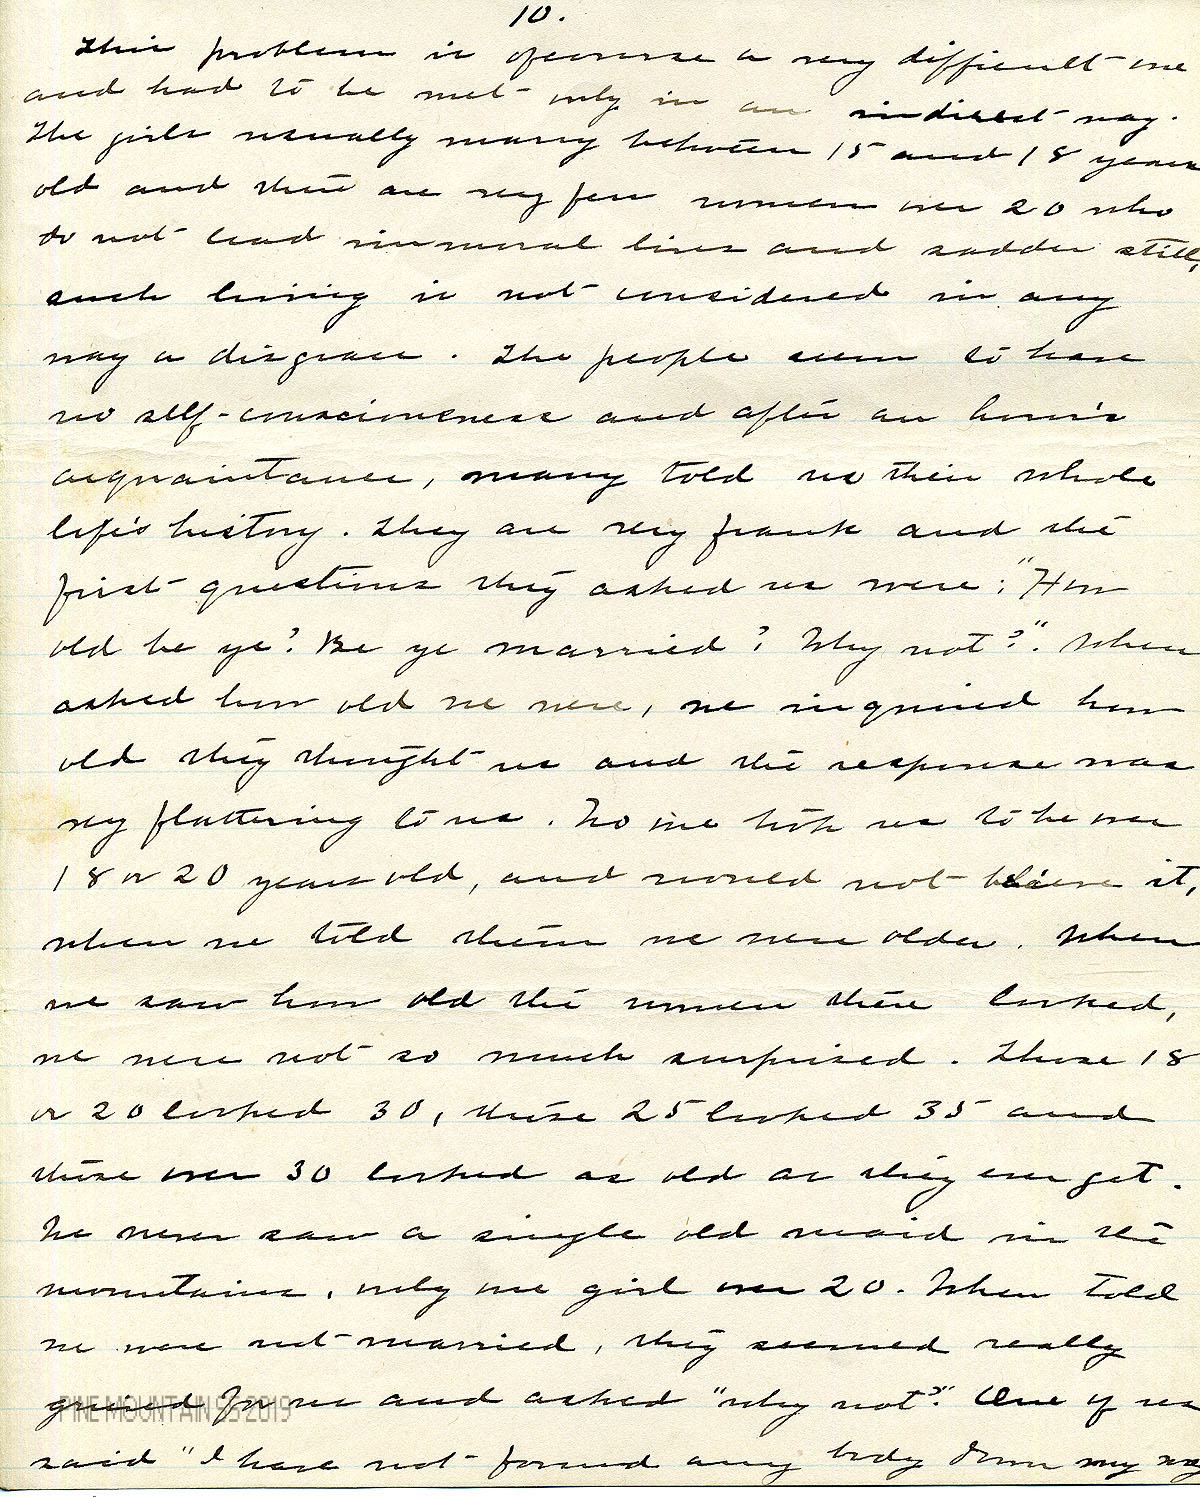 10.
This problem is ofcourse a very difficult one
and had to be met only in an indirect way.
The girls usually marry between 15 and 18 years
old and there are very few women over 20 who
do not lead immoral lives and sadder still,
such living is not considered in any
way a disgrace. The people seem to have
no self-consciousness and after an hour's
acquaintance, many told us their whole
life's history. They are very frank and the
first questions they asked us were: "How
old be ye? Be ye married? Why not?". When
asked how old we were, we inquired how
old they thought us and the response was
very flattering to us. No one took us to be over
18 or 20 years old, and would not believe it,
when we told them we were older. When
we saw how old the women there looked,
we were not so much surprised. Those 18
or 20 looked 30, those 25 looked 35 and
those over 30 looked as old as they ever get.
We never saw a single old maid in the
mountains, only one girl over 20. When told
we were not married, they seemed really
grieved for us and asked "why not?" One of us
said "I have not found any body down my way
PINE MOUNTAIN SS 2019